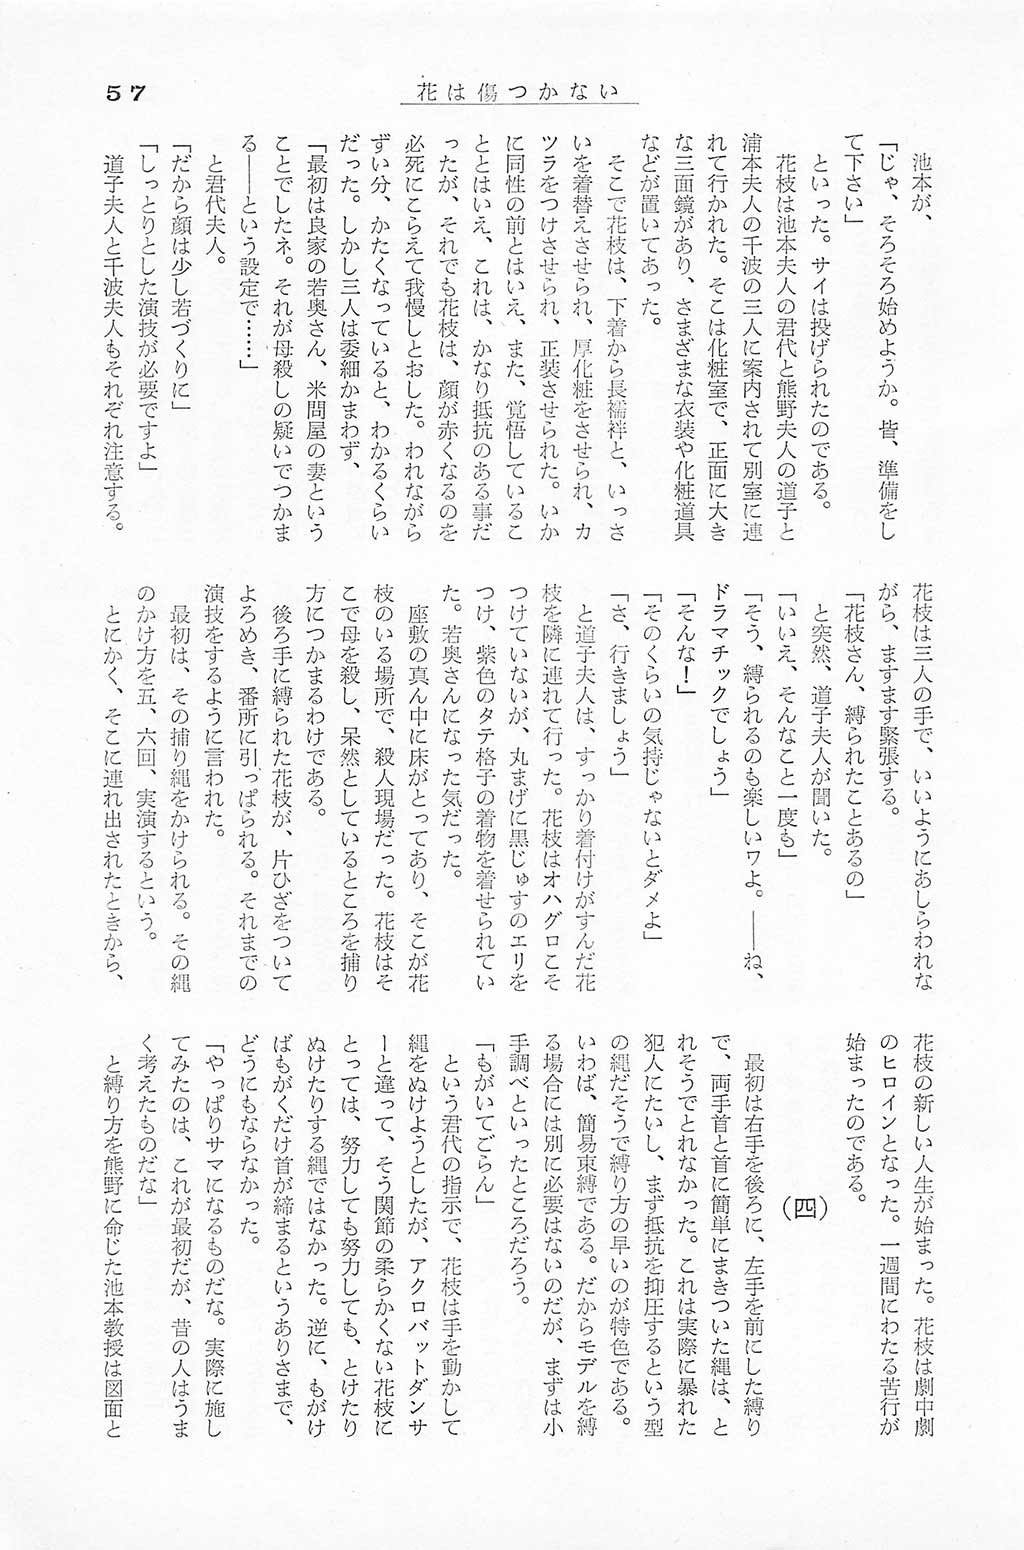 57
花は傷つかない
池本が、
「じゃ、そろそろ始めようか。皆、準備をし
て下さい」
といった。サイは投げられたのである。
花枝は池本夫人の君代と熊野夫人の道子と
浦本夫人の千波の三人に案内されて別室に連
れて行かれた。そこは化粧室で、正面に大き
な三面鏡があり、さまざまな衣装や化粧道具
などが置いてあった。
そこで花枝は、下着から長襦袢と、いっさ
いを着替えさせられ、厚化粧をさせられ、カ
ツラをつけさせられ、正装させられた。いか
に同性の前とはいえ、また、覚悟しているこ
ととはいえ、これは、かなり抵抗のある事だ
ったが、それでも花枝は、顔が赤くなるのを
必死にこらえて我慢しとおした。われながら
ずい分、かたくなっていると、わかるくらい
だった。しかし三人は委細かまわず、
「最初は良家の若奥さん、米問屋の妻という
ことでしたネ。それが母殺しの疑いでつかま
る――という設定で……」
と君代夫人。
「だから顔は少し若づくりに」
「しっとりとした演技が必要ですよ」
道子夫人と千波夫人もそれぞれ注意する。
花枝は三人の手で、いいようにあしらわれな
がら、ますます緊張する。
「花枝さん、縛られたことあるの」
と突然、道子夫人が聞いた。
「いいえ、そんなこと一度も」
「そう、縛られるのも楽しいワよ。――ね、
ドラマチックでしょう」
「そんな！」
「そのくらいの気持じゃないとダメよ」
「さ、行きましょう」
と道子夫人は、すっかり着付けがすんだ花
枝を隣に連れて行った。花枝はオハグロこそ
つけていないが、丸まげに黒じゅすのエリを
つけ、紫色のタテ格子の着物を着せられてい
た。若奥さんになった気だった。
座敷の真ん中に床がとってあり、そこが花
枝のいる場所で、殺人現場だった。花枝はそ
こで母を殺し、呆然としているところを捕り
方につかまるわけである。
後ろ手に縛られた花枝が、片ひざをついて
よろめき、番所に引っぱられる。それまでの
演技をするように言われた。
最初は、その捕り縄をかけられる。その縄
のかけ方を五、六回、実演するという。
とにかく、そこに連れ出されたときから、
花枝の新しい人生が始まった。花枝は劇中劇
のヒロインとなった。一週間にわたる苦行が
始まったのである。
（四）
最初は右手を後ろに、左手を前にした縛り
で、両手首と首に簡単にまきついた縄は、と
れそうでとれなかった。これは実際に暴れた
犯人にたいし、まず抵抗を抑圧するという型
の縄だそうで縛り方の早いのが特色である。
いわば、簡易束縛である。だからモデルを縛
る場合には別に必要はないのだが、まずは小
手調べといったところだろう。
「もがいてごらん」
という君代の指示で、花枝は手を動かして
縄をぬけようとしたが、アクロバットダンサ
ーと違って、そう関節の柔らかくない花枝に
とっては、努力しても努力しても、とけたり
ぬけたりする縄ではなかった。逆に、もがけ
ばもがくだけ首が締まるというありさまで、
どうにもならなかった。
「やっぱりサマになるものだな。実際に施し
てみたのは、これが最初だが、昔の人はうま
く考えたものだな」
と縛り方を熊野に命じた池本教授は図面と